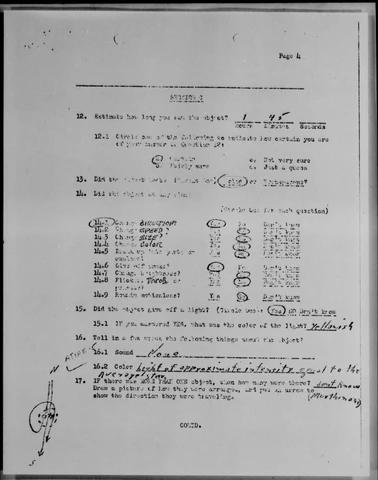 Page 4
12. Estimate how long you saw the object? 1 45
Hours Minutes Seconds
12.1 Circle one of the following to indicate how certain you are
of your answer to Question 12:
a. Certain c. Not very sure
b. Fairly sure d. Just a guess
13. Did the object look: (Circle One) Solid or Transparent?
14. Did the object at any time:
(Circle One for each question)
14.1 Change direction? Yes No Don't know
14.2 Change speed? Yes No Don't know
14.3 Change size? Yes No Don't know
14.4 Change color? Yes No Don't know
14.5 Break up into parts or Yes No Don't know
explode?
14.6 Give off smoke? Yes No Don't know
14.7 Change brightness? Yes No Don't know
14.8 Flicker, throb, or Yes No Don't know
pulsate?
14.9 Remain motionless? Yes No Don't know
15. Did the object give off a light? (Circle One): Yes NO Don't know
15.1 IF you answered YES, what was the color of the light? Yellowish
16. Tell in a few words the following things about the object?
16.1 Sound None
16.2 Color light of approximate intensity equal to the
Average star
17. IF there was MORE THAN ONE object, then how many were there? don't know
Draw a picture of how they were arranged, and put an arrow to
show the direction they were traveling.
N
S
CONTD.